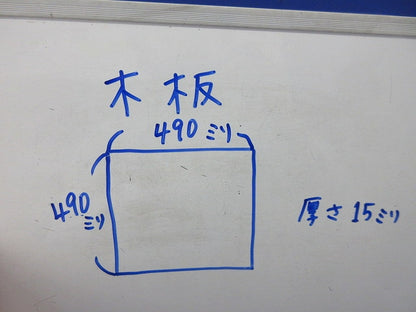 木板
490ミリ
490
ミリ
厚さ15ミリ